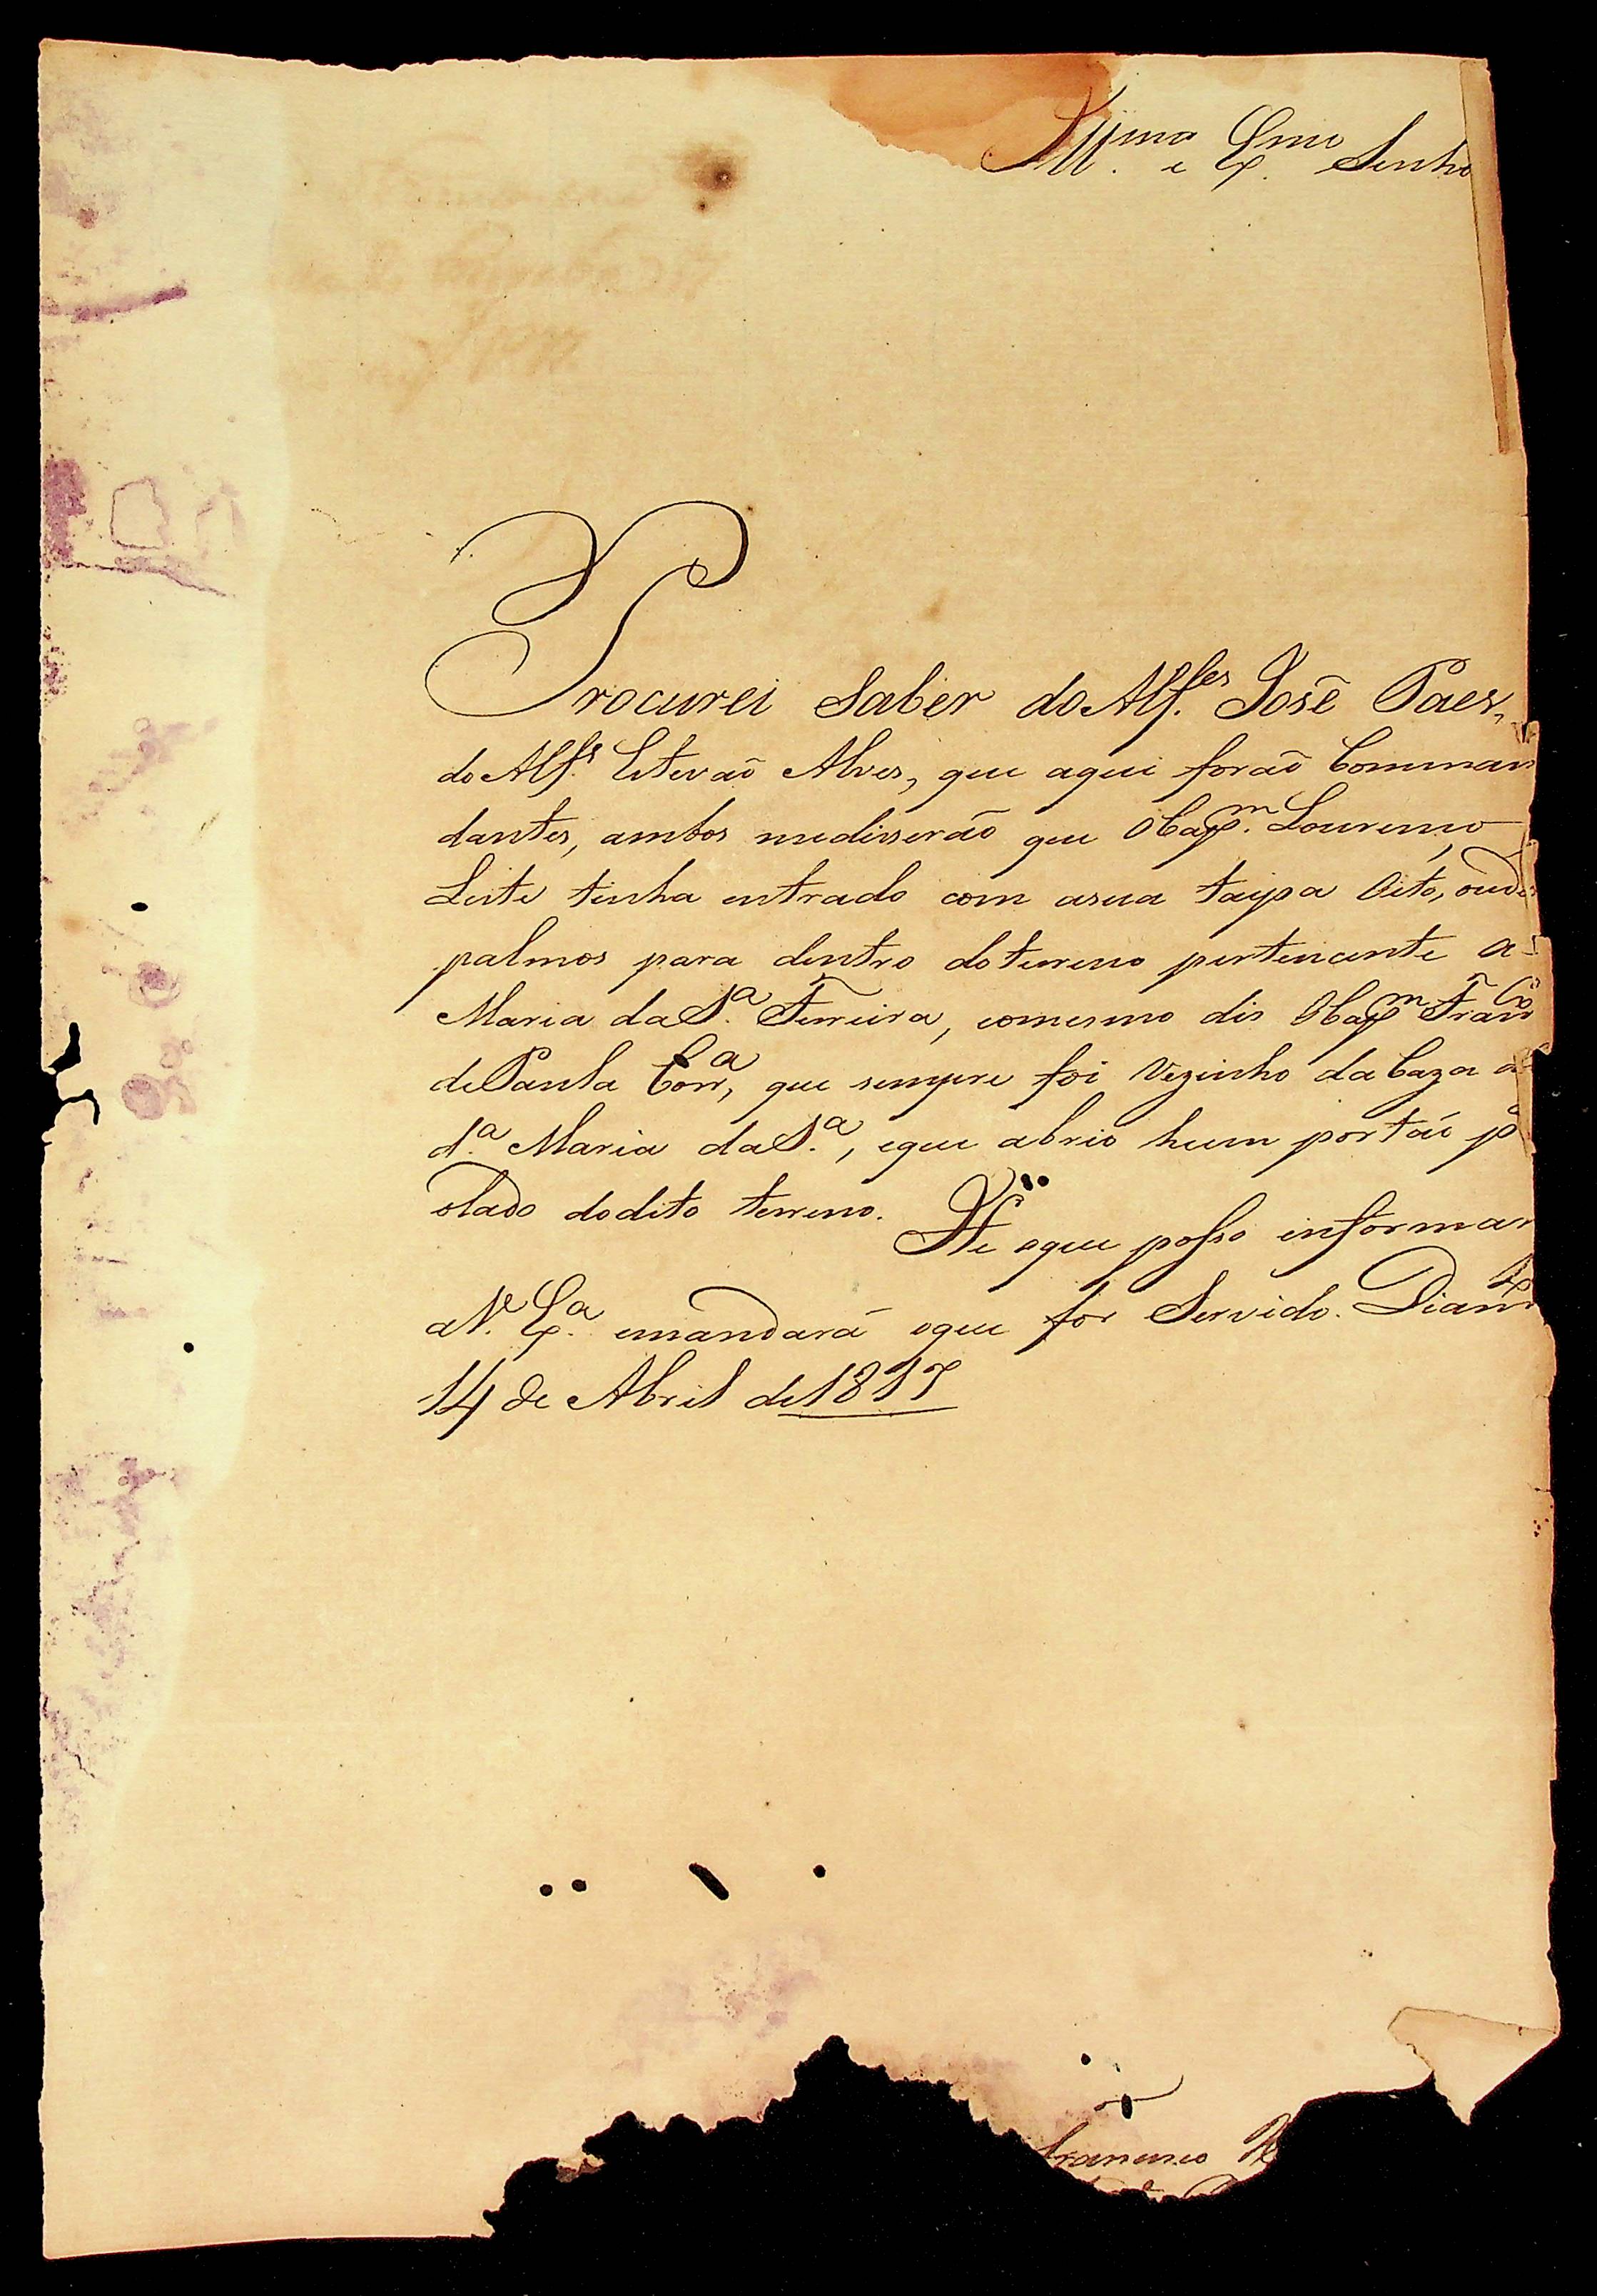 Ill.mo e Ex.mo Senho
Procurei Saber do Alf.es José Paes,
do Alf.s Estevaõ Alves, que aqui foraõ Comman
dantes, ambos medisseraõ que OCap.m Lourenço
Leite tinha entrado com asua taipa Oito, oude
palmos para dentro doterreno pertencente a
Maria daS.a Ferreira, eomesmo dis OCap.m Fran.co
dePaula Corr.a, que sempre foi Vezinho daCaza
d.a Maria daS.a, eque abrio hum portaõ p
olado dodito terreno.
He oque posso informar
aV. Ex.a emandará oque for Servido.
14 de Abril de 1817
Francisco